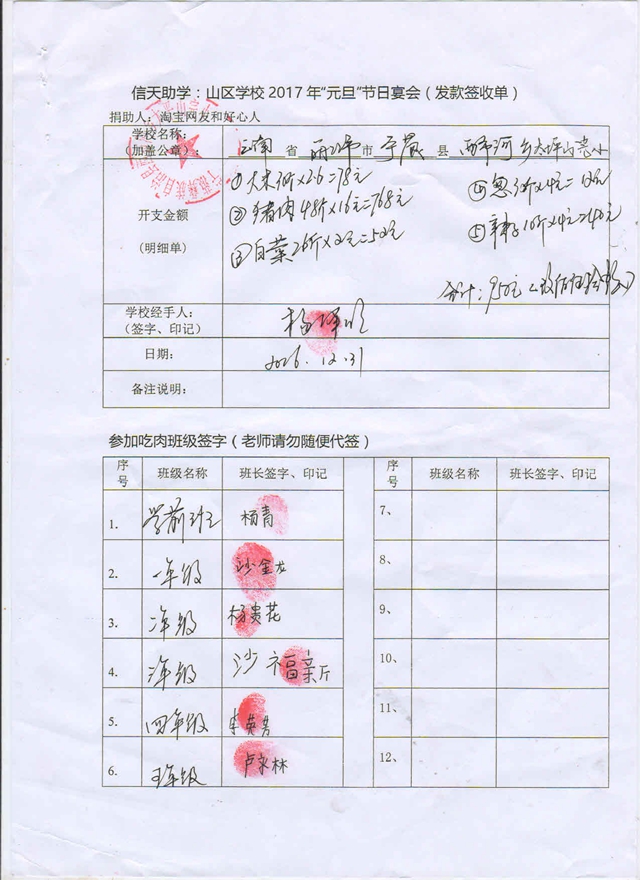 信天助学：山区学校 2017 年“元旦”节日宴会（发款签收单）
捐助人：淘宝网友和好心人
学校名称：
（加盖公章）：
云南 省 丽江 市 宁蒗 县 西布河 乡
开支金额
（明细单）
①大米30斤×2.6=78元
②猪肉48斤×16元=768元
③白菜26斤×2元=52元
④葱3斤×4元=12元
⑤辣子10斤×4元=40元
合计：950元
学校经手人：
（签字、印记）
日期：
2016.12.31
备注说明：
参加吃肉班级签字（老师请勿随便代签）
序号 班级名称 班长签字、印记 序号 班级名称 班长签字、印记
1. 学前班 杨青 7、
2. 一年级 沙金龙 8、
3. 二年级 杨贵花 9、
4. 三年级 沙福 10、
5. 四年级 11、
6. 五年级 卢永林 12、